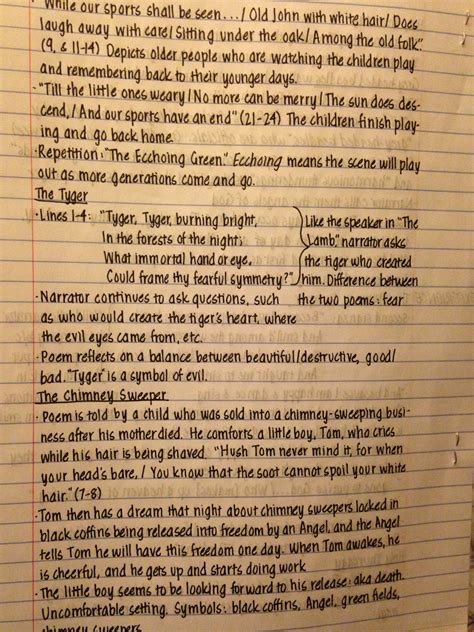 "While our sports shall be seen.../Old John with white hair/Does
laugh away with care/Sitting under the oak/Among the old folk."
(9, & 11-14) Depicts older people who are watching the children play
and remembering back to their younger days.
·"Till the little ones weary/No more can be merry/The sun does des-
cend,/And our sports have an end" (21-24) The children finish play-
ing and go back home.
·Repetition: "The Ecchoing Green." Ecchoing means the scene will play
out as more generations come and go.
The Tyger
·Lines 1-4: "Tyger, Tyger, burning bright, Like the speaker in "The
In the forests of the night: Lamb," narrator asks
What immortal hand or eye, the tiger who created
Could frame thy fearful symmetry?" him. Difference between
·Narrator continues to ask questions, such the two poems: fear
as who would create the tiger's heart, where
the evil eyes came from, etc.
·Poem reflects on a balance between beautiful/destructive, good/
bad. "Tyger" is a symbol of evil.
The Chimney Sweeper
·Poem is told by a child who was sold into a chimney-sweeping busi-
ness after his mother died. He comforts a little boy, Tom, who cries
while his hair is being shaved. "Hush Tom never mind it, for when
your head's bare,/You know that the soot cannot spoil your white
hair." (7-8)
·Tom then has a dream that night about chimney sweepers locked in
black coffins being released into freedom by an Angel, and the Angel
tells Tom he will have this freedom one day. When Tom awakes, he
is cheerful, and he gets up and starts doing work
·The little boy seems to be looking forward to his release: aka death.
Uncomfortable setting. Symbols: black coffins, Angel, green fields,
chimney sweepers